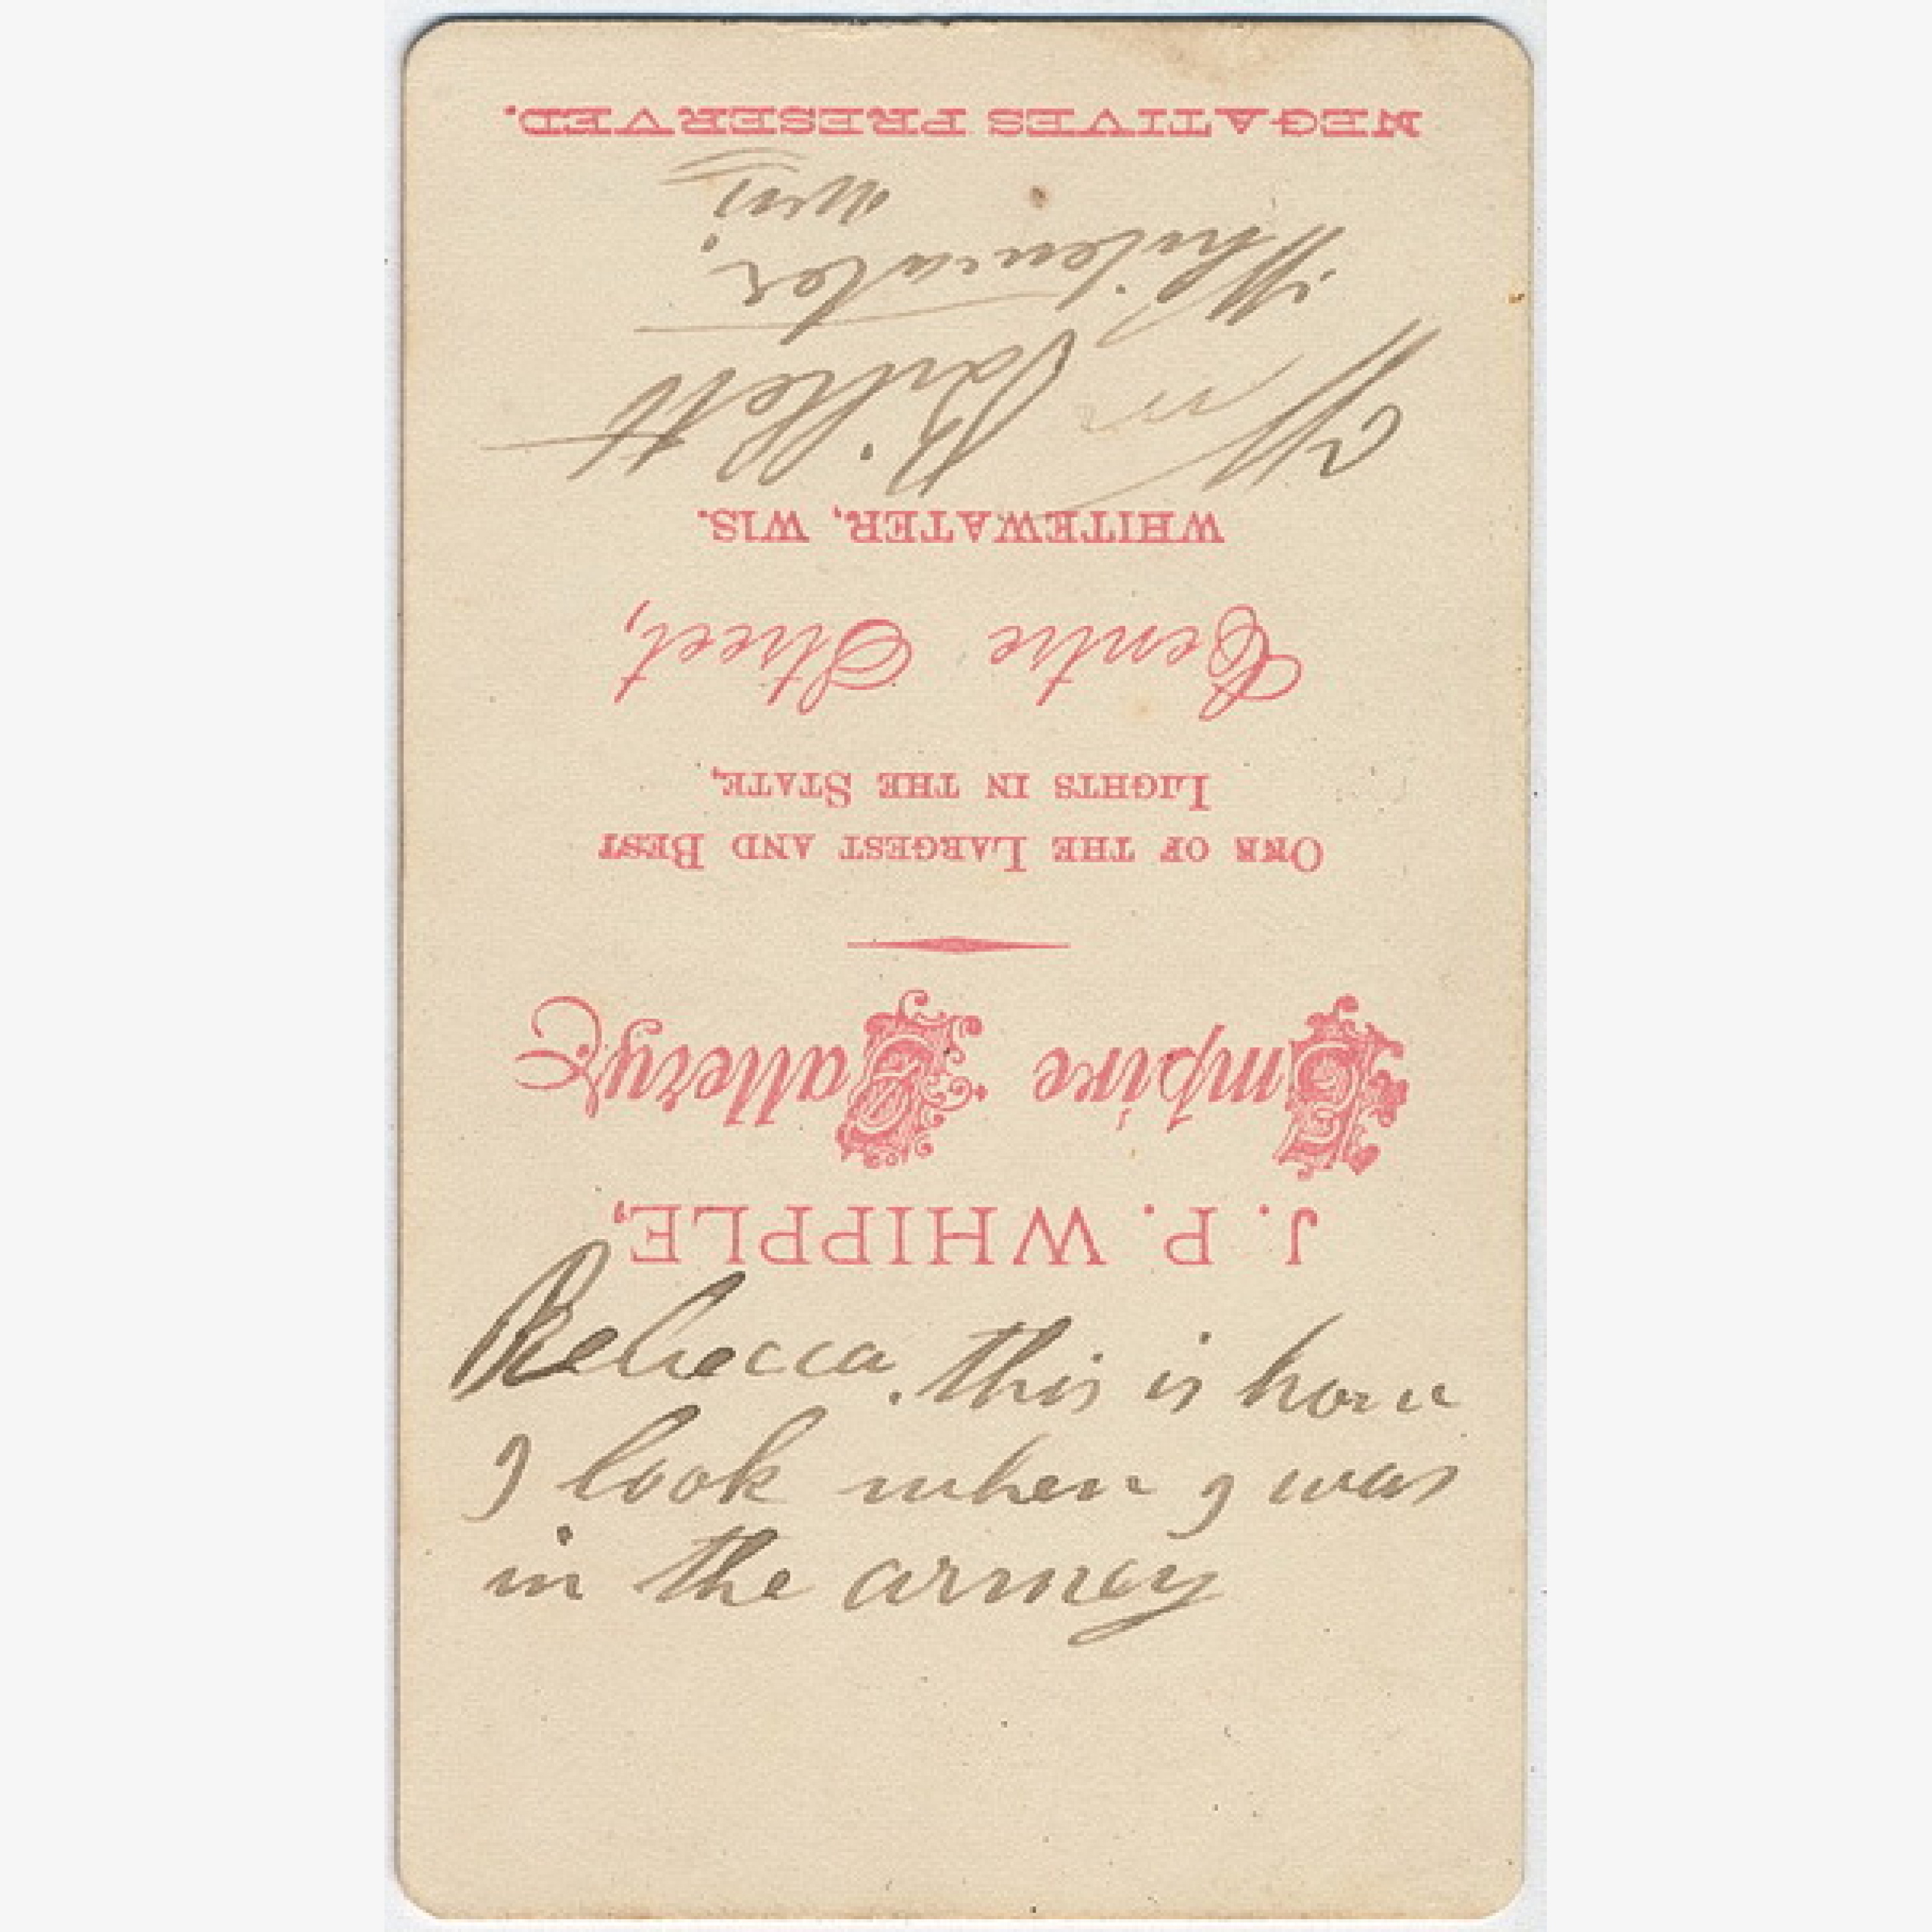 Rebecca, this is how
I look when I was
in the armey
J. P. WHIPPLE,
Empire Gallery
ONE OF THE LARGEST AND BEST
LIGHTS IN THE STATE,
Centre Street,
WHITEWATER, WIS.
Wm
Whitewater,
Wis
NEGATIVES PRESERVED.